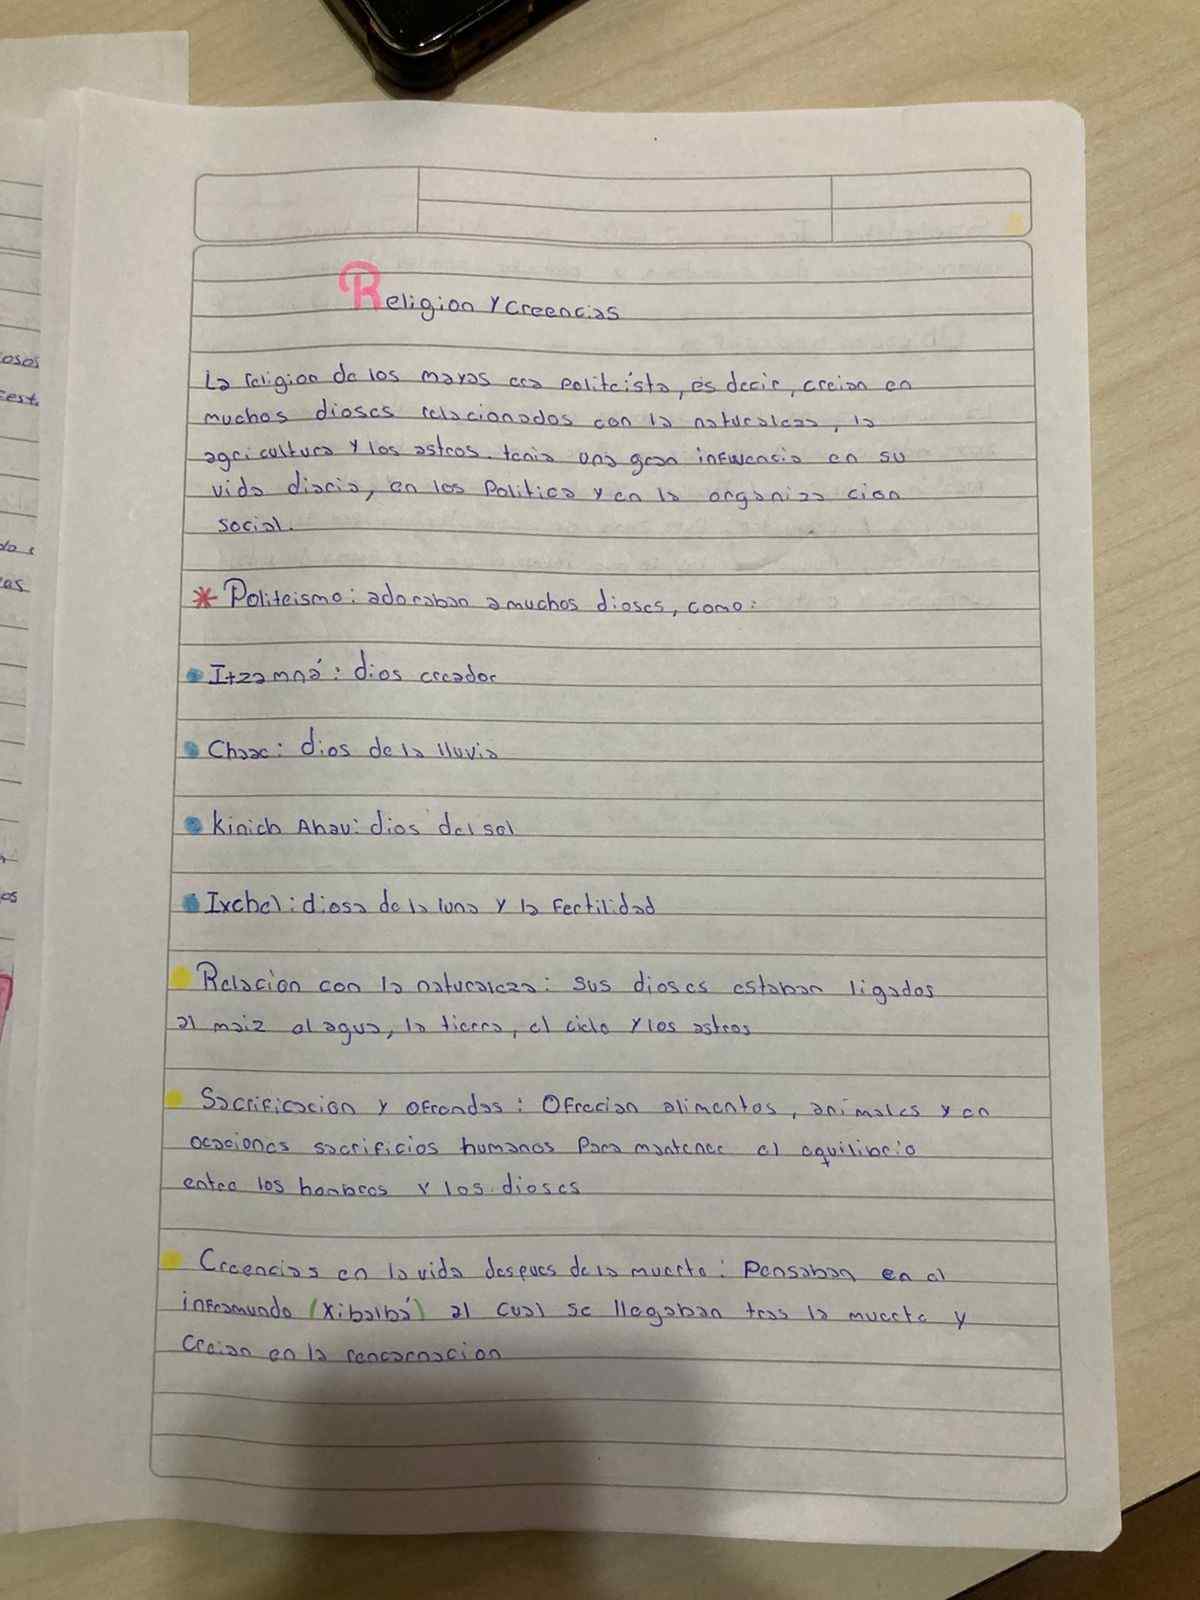 Religion y creencias
La religion de los mayas era politeista, es decir, creian en
muchos dioses relacionados con la naturaleza, la
agricultura y los astros. tenia una gran influencia en su
vida diaria, en los Politica y en la organiza cion
social.
* Politeismo: adoraban a muchos dioses, como:
Itzamná: dios creador
Chaac: dios de la lluvia
Kinich Ahau: dios del sol
Ixchel: diosa de la luna y la Fertilidad
Relacion con la naturaleza: sus dioses estaban ligados
al maiz al agua, la tierra, el cielo y los astros
Sacrificacion y ofrendas: Ofrecian alimentos, animales y en
ocaciones sacrificios humanos para mantener el equilibrio
entre los hombres y los dioses
Creencias en la vida despues de la muerte: Pensaban en el
inframundo (Xibalbá) al cual se llegaban tras la muerte y
Creian en la rencarnacion
osos
do s
cas
os